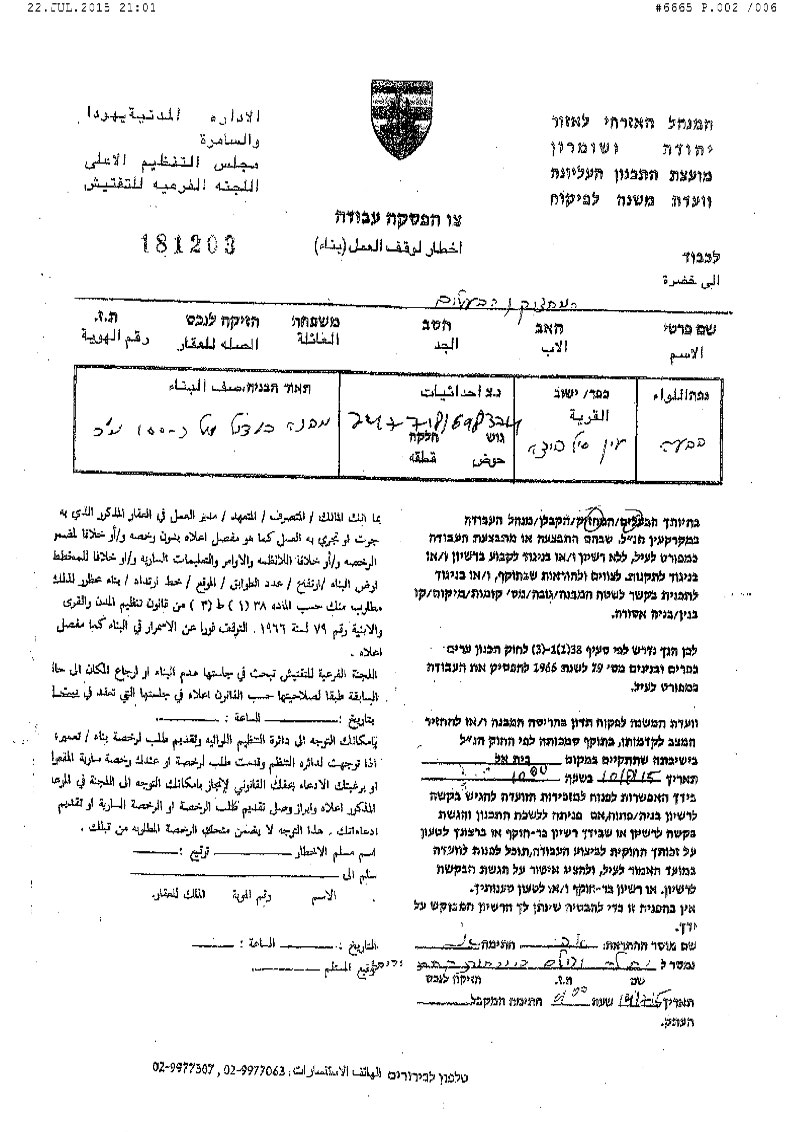 22.JUL.2015 21:01
#6665 P.002 /006
המנהל האזרחי לאזור
יהודה ושומרון
מועצת התכנון העליונה
וועדת משנה לפיקוח
الاداره المدنية يهودا
والسامرة
مجلس التنظيم الاعلى
اللجنه الفرعيه للتفتيش
צו הפסקת עבודה
اخطار لوقف العمل (بناء)
181203
לכבוד
الى حضرة
המחזיק / הבעלים
שם פרטי האב הסב משפחה הזיקה לנכס ת.ז.
الاسم الاب الجد العائلة الصله للعقار رقم الهوية
נפה/اللواء כפר/ ישוב القرية נ.צ احداثيات תאור הבניה/صف البناء
גוש חלקה
حوض قطعه
בהיותך הבעלים/המחזיק/הקבלן/מנהל העבודה
במקרקעין הנ"ל, שבהם התבצעה או מתבצעת העבודה
כמפורט לעיל, ללא רשיון ו/או בניגוד לקבוע ברשיון ו/או
בניגוד לתקנות, לצווים ולהוראות שבתוקף, ו/או בניגוד
לתכנית בקשר לשטח המבנה/גובה/מס' קומות/מיקום/קו
בנין/בניה אסורה.
לכן הנך נדרש לפי סעיף 38(1)-(3) לחוק תכנון ערים
כפרים ובנינים מס' 79 לשנת 1966 להפסיק את העבודה
כמפורט לעיל.
וועדת המשנה לפקוח תדון בהריסת המבנה ו/או להחזיר
המצב לקדמותו, בתוקף סמכותה לפי החוק הנ"ל
בישיבתה שתתקיים במקום בית אל
תאריך 10/8/15 בשעה 10:00
בידך האפשרות לפנות למזכירות הוועדה להגיש בקשה
לרשיון בניה/פתוח, אם פניתה ללשכת התכנון והגשת
בקשה לרשיון או שבידך רשיון בר-תוקף או ברצונך לטעון
על זכותך החוקית לביצוע העבודה, תוכל לפנות לוועדה
במועד האמור לעיל, ולהציג אישור על הגשת הבקשה
לרשיון. או רשיון בר-תוקף ו/או לטעון טענותיך.
אין בהפניה זו כדי להבטיח שינתן לך הרשיון המבוקש על
ידך.
שם מוסר ההתראה: חתימה
נמסר ל
שם ת.ז. הזיקה לנכס
תאריך שעה חתימת המקבל
העתק.
بما انك المالك / المتصرف / المتعهد / مدير العمل في العقار المذكور الذي به
جرت او تجري به العمل كما هو مفصل اعلاه بدون رخصه و/أو خلافا لمضمون
الرخصه و/أو خلافا للانظمه والاوامر والتعليمات الساريه و/او خلافا للمخطط
لرض البناء / ارتفاع / عدد الطوابق / الموقع / خط ارتداد / بناء محظور لذلك
مطلوب منك حسب الماده ٣٨ (١) ط (٣) من قانون تنظيم المدن والقرى
والابنية رقم ٧٩ لسنة ١٩٦٦ . التوقف فورا عن الاسمرار في البناء كما مفصل
اعلاه .
اللجنه الفرعية للتفتيش تبحث في جلستها هدم البناء او ارجاع المكان الى حالته
السابقة طبقا لصلاحيتها حسب القانون اعلاه في جلستها التي تعقد في
بتاريخ : الساعة :
بامكانك التوجه الى دائرة التنظيم اللوائيه وتقديم طلب لرخصة بناء / تعمير؛
اذا توجهت لدائره التنظم وقدمت طلب لرخصة او عندك رخصة سارية المفعول
او برغبتك الادعاء بحقك القانوني لإنجاز بامكانك التوجه الى اللجنة في الموعد
المذكور اعلاه وابراز وصل تقديم طلب الرخصة او الرخصة السارية او تقديم
ادعاءاتك . هذا التوجه لا يضمن منحك الرخصة المطلوبه من قبلك .
اسم مسلم الاخطار توقيع :
سلم الى
الاسم رقم الهوية المالك للعقار.
التاريخ : الساعة :
توقيع المستلم
טלפון לבירורים الهاتف الاستفسارات: 02-9977063, 02-9977307